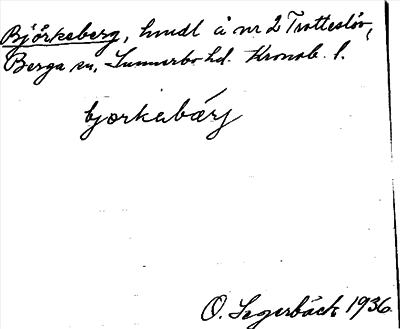 Björkeberg, hmdl å nr 2 Trotteslöv,
Berga sn, Sunnerbo hd. Kronob. l.
bjorkabärj
O. Segerbäck 1936.